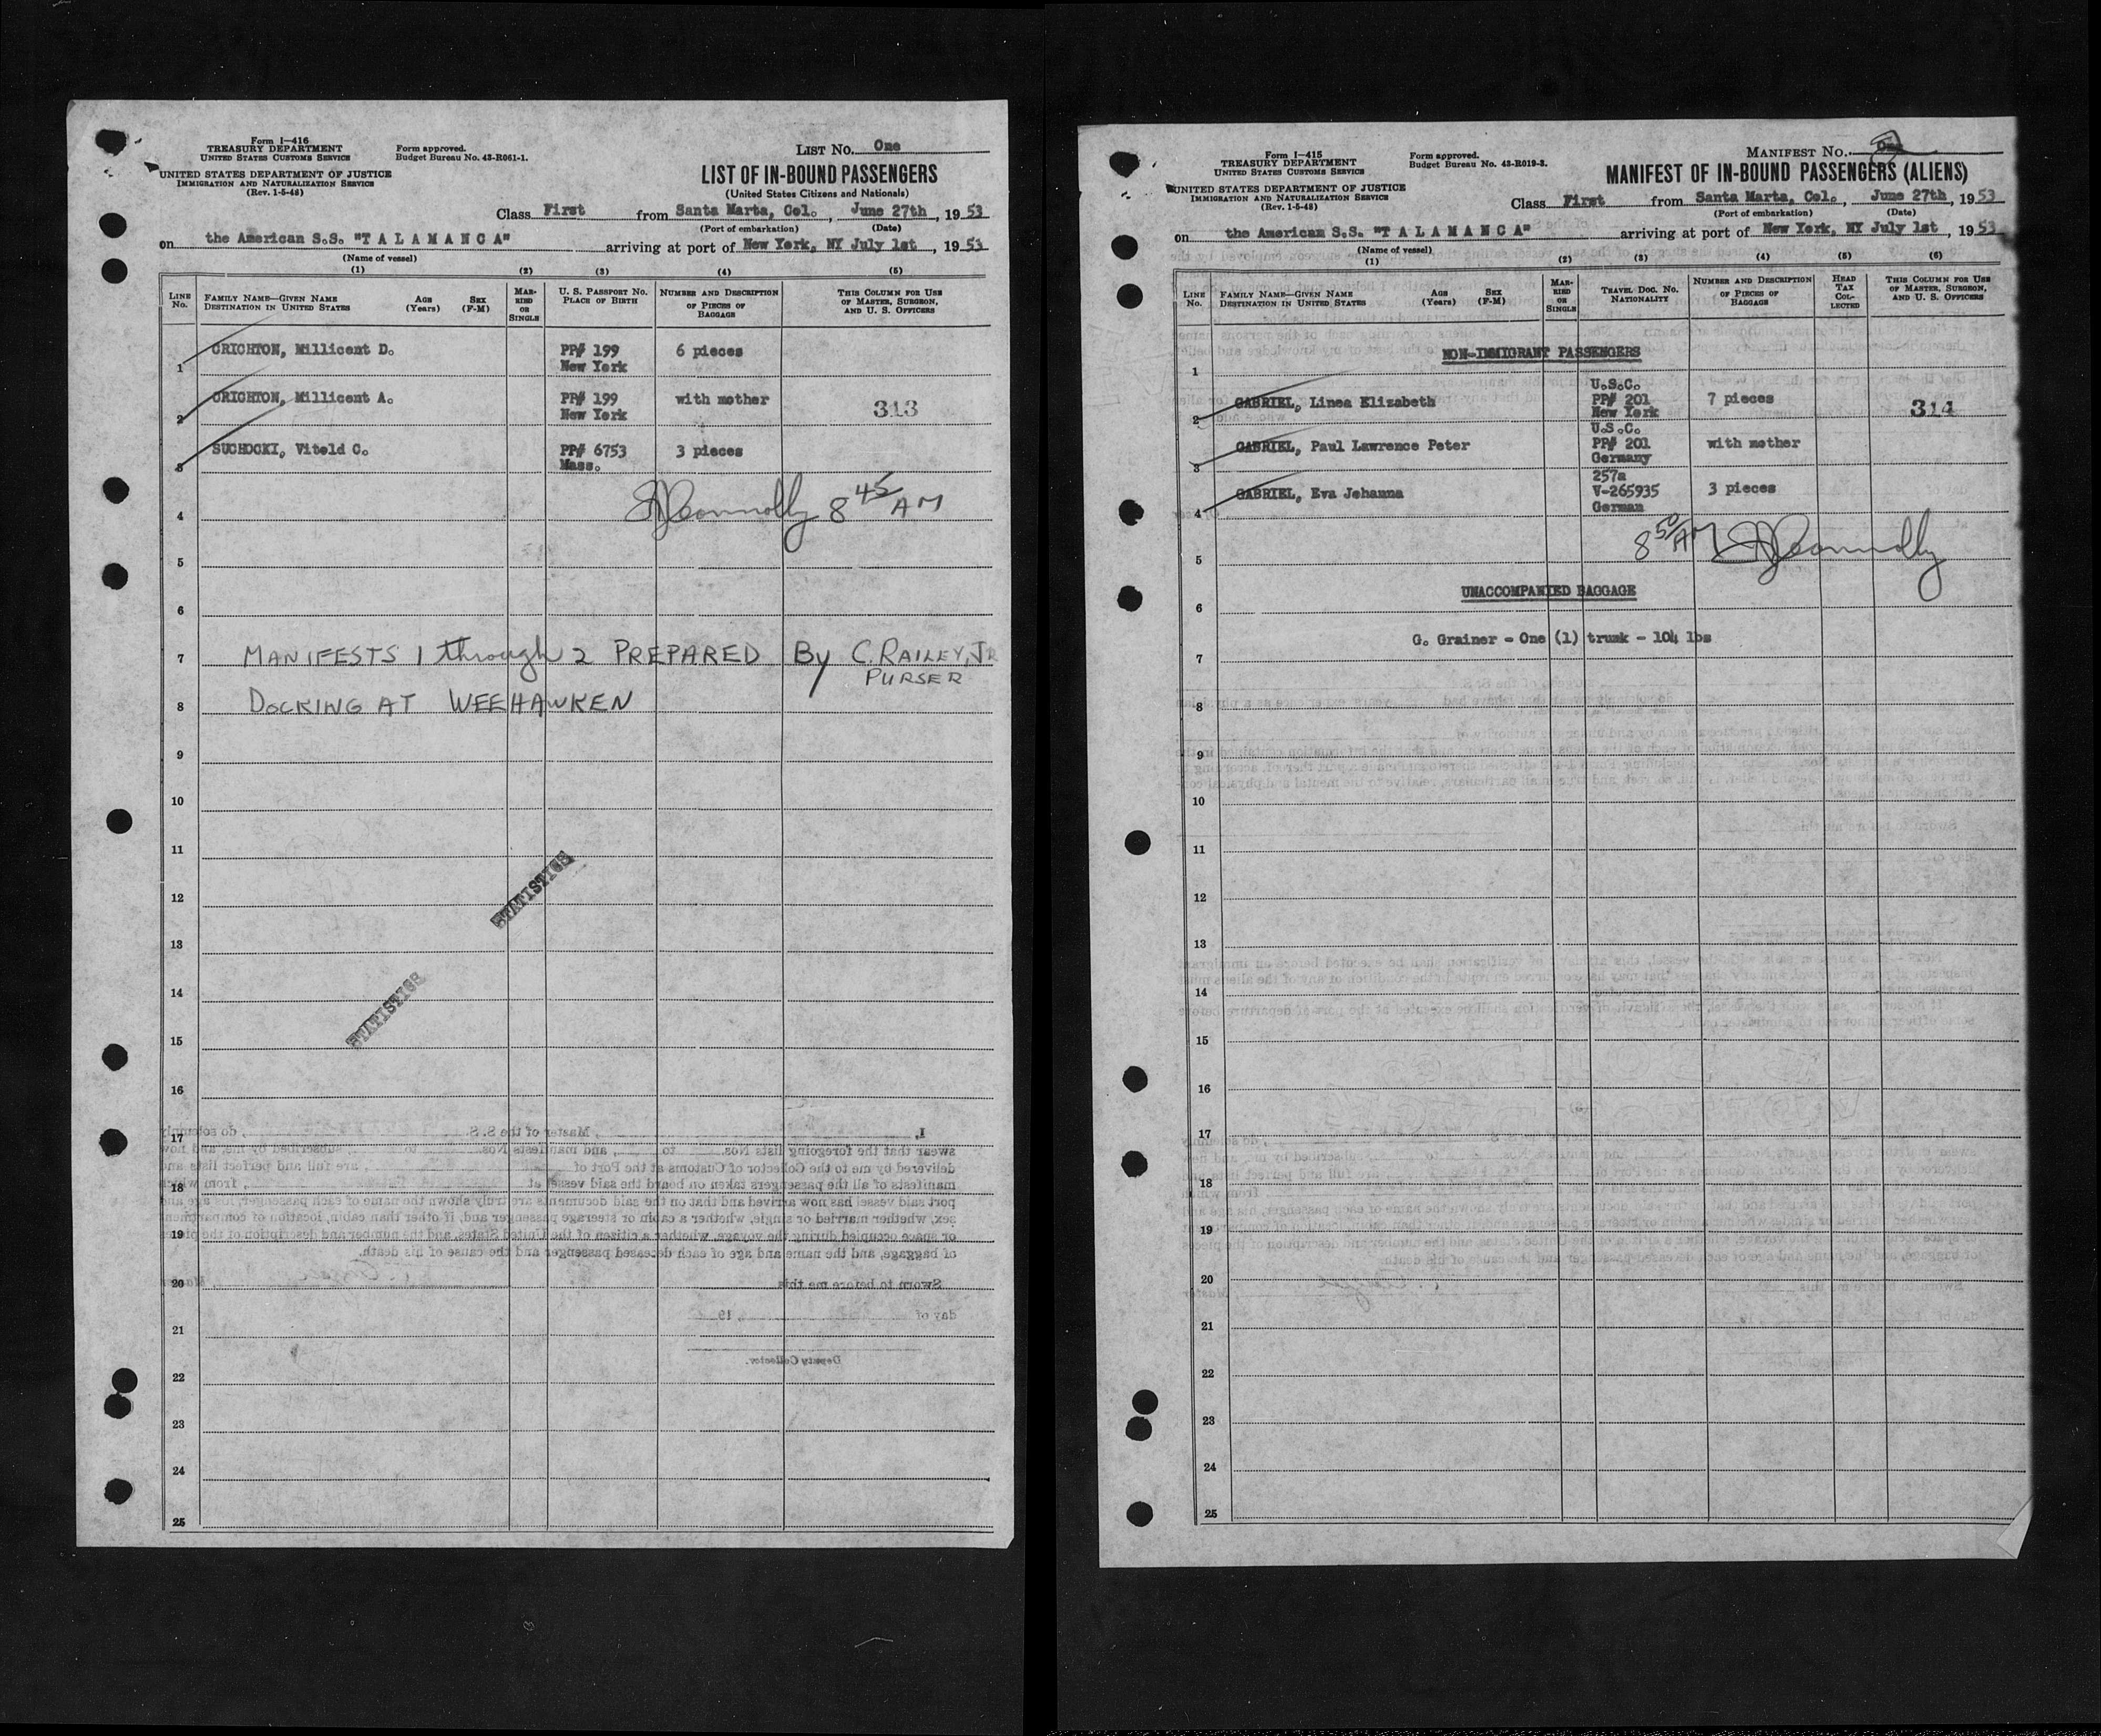 Form I—416
TREASURY DEPARTMENT
UNITED STATES CUSTOMS SERVICE
UNITED STATES DEPARTMENT OF JUSTICE
IMMIGRATION AND NATURALIZATION SERVICE
(Rev. 1-5-48)
Form approved.
Budget Bureau No. 43-R061-1.
LIST NO. One
LIST OF IN-BOUND PASSENGERS
(United States Citizens and Nationals)
Class First from Santa Marta, Col., June 27th, 1953
(Port of embarkation) (Date)
on the American S.S. "T A L A M A N C A" arriving at port of New York, NY July 1st, 1953
(Name of vessel)
(1) (2) (3) (4) (5)
LINE NO. FAMILY NAME—GIVEN NAME DESTINATION IN UNITED STATES AGE (Years) SEX (F-M) MARRIED OR SINGLE U. S. PASSPORT NO. PLACE OF BIRTH NUMBER AND DESCRIPTION OF PIECES OF BAGGAGE THIS COLUMN FOR USE OF MASTER, SURGEON, AND U. S. OFFICERS
1 CRICHTON, Millicent D. PP# 199 New York 6 pieces
2 CRICHTON, Millicent A. PP# 199 New York with mother 313
3 SUCHOCKI, Vitold C. PP# 6753 Mass. 3 pieces
4 Connolly 8 45 AM
5
6
7 MANIFESTS 1 through 2 PREPARED By C. RAILEY, JR
PURSER
8 DOCKING AT WEEHAWKEN
9
10
11
STATISTICS
12
13
14
STATISTICS
15
16
17
I, , Master of the S. S. , do solemnly
swear that the foregoing lists Nos. to , and manifests Nos. to , subscribed by me, and now
delivered by me to the Collector of Customs at the Port of , are full and perfect lists and
18
manifests of all the passengers taken on board the said vessel at , from which
port said vessel has now arrived and that on the said documents are truly shown the name of each passenger, his age and
sex, whether married or single, whether a cabin or steerage passenger and, if other than cabin, location of compartment
19
or space occupied during the voyage, whether a citizen of the United States, and the number and description of the pieces
of baggage, and the name and age of each deceased passenger and the cause of his death.
20
Sworn to before me this
day of , 19
21
Deputy Collector.
22
23
24
25
Form I—415
TREASURY DEPARTMENT
UNITED STATES CUSTOMS SERVICE
UNITED STATES DEPARTMENT OF JUSTICE
IMMIGRATION AND NATURALIZATION SERVICE
(Rev. 1-5-48)
Form approved.
Budget Bureau No. 43-R019-3.
MANIFEST NO. One
MANIFEST OF IN-BOUND PASSENGERS (ALIENS)
Class First from Santa Marta, Col., June 27th, 1953
(Port of embarkation) (Date)
on the American S.S. "T A L A M A N C A" arriving at port of New York, NY July 1st, 1953
(Name of vessel)
(1) (2) (3) (4) (5) (6)
LINE NO. FAMILY NAME—GIVEN NAME DESTINATION IN UNITED STATES AGE (Years) SEX (F-M) MARRIED OR SINGLE TRAVEL DOC. NO. NATIONALITY NUMBER AND DESCRIPTION OF PIECES OF BAGGAGE HEAD TAX COLLECTED THIS COLUMN FOR USE OF MASTER, SURGEON, AND U. S. OFFICERS
NON-IMMIGRANT PASSENGERS
1
2 GABRIEL, Linea Elizabeth U.S.C. PP# 201 New York 7 pieces 314
3 GABRIEL, Paul Lawrence Peter U.S.C. PP# 201 Germany with mother
4 GABRIEL, Eva Johanna 257a V-265935 German 3 pieces
5 8 50 AM Connolly
UNACCOMPANIED BAGGAGE
6
G. Grainer - One (1) trunk - 104 lbs
7
8
9
10
11
12
13
14
15
16
17
18
19
20
21
22
23
24
25